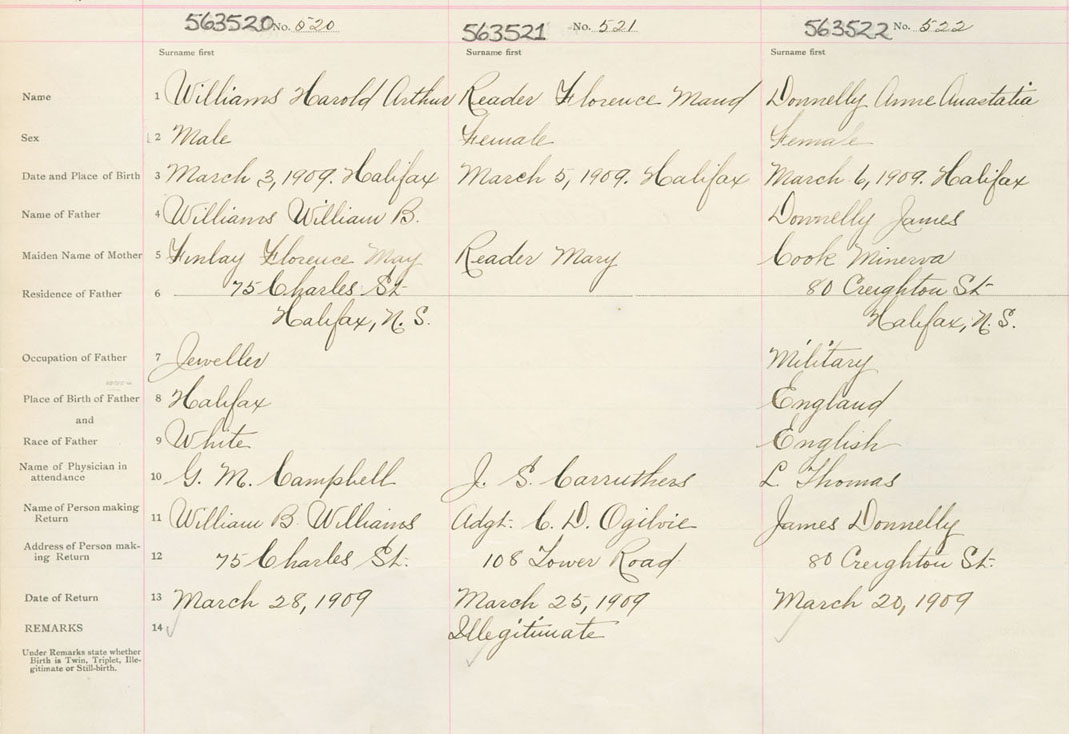 563520 No. 520 563521 No. 521 563522 No. 522
Surname first Surname first Surname first
Name 1 Williams Harold Arthur Reader Florence Maud Donnelly Anne Anastatia
Sex 2 Male Female Female
Date and Place of Birth 3 March 3, 1909. Halifax March 5, 1909. Halifax March 6, 1909. Halifax
Name of Father 4 Williams William B. Donnelly James
Maiden Name of Mother 5 Finlay Florence May Reader Mary Cook Minerva
Residence of Father 6 75 Charles St. 80 Creighton St.
Halifax, N. S. Halifax, N. S.
Occupation of Father 7 Jeweller Military
Place of Birth of Father 8 Halifax England
and
Race of Father 9 White English
Name of Physician in
attendance 10 G. M. Campbell J. S. Carruthers L. Thomas
Name of Person making
Return 11 William B Williams Adgt. C. D. Ogilvie James Donnelly
Address of Person mak-
ing Return 12 75 Charles St. 108 Tower Road 80 Creighton St.
Date of Return 13 March 28, 1909 March 25, 1909 March 20, 1909
REMARKS 14 Illegitimate
Under Remarks state whether
Birth is Twin, Triplet, Ille-
gitimate or Still-birth.